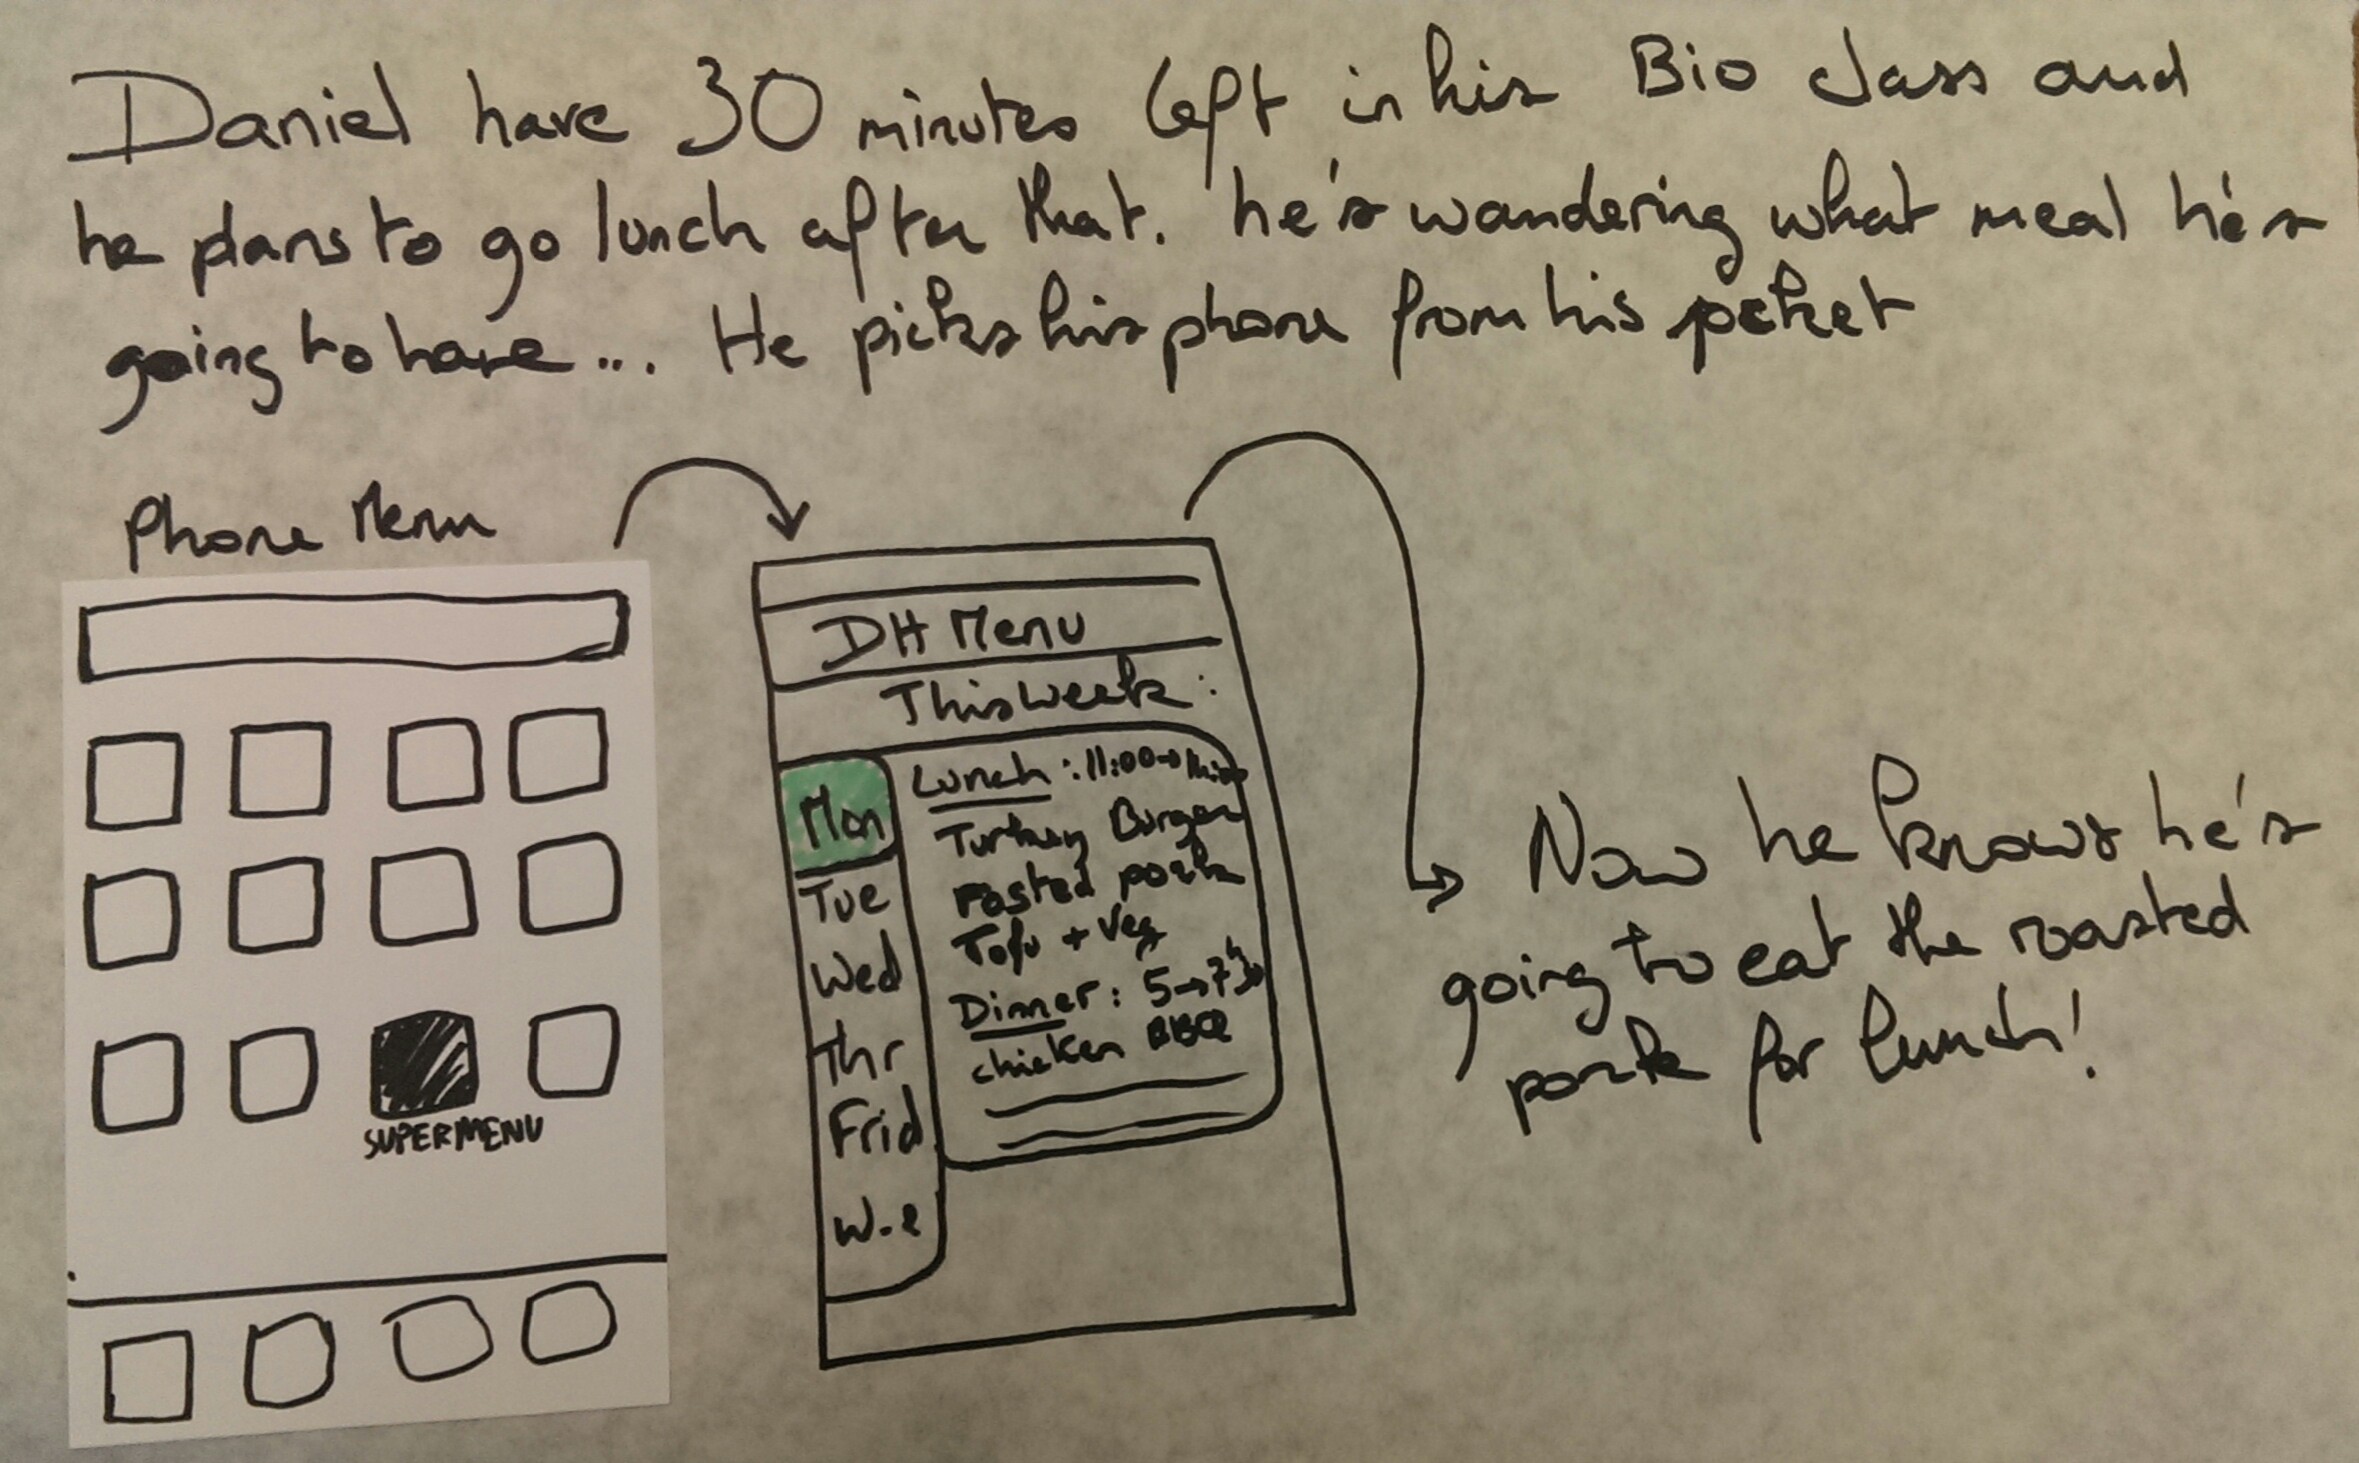 Daniel have 30 minutes left in his Bio class and
he plans to go lunch after that. he's wandering what meal he's
going to have... He picks his phone from his pocket
Phone Menu
SUPERMENU
DH Menu
This week:
Mon
Tue
Wed
Thr
Frid
W.e
Lunch: 11:00→
Turkey Burger
rosted pork
Tofu + Veg
Dinner: 5→730
chicken BBQ
Now he knows he's
going to eat the roasted
pork for lunch!